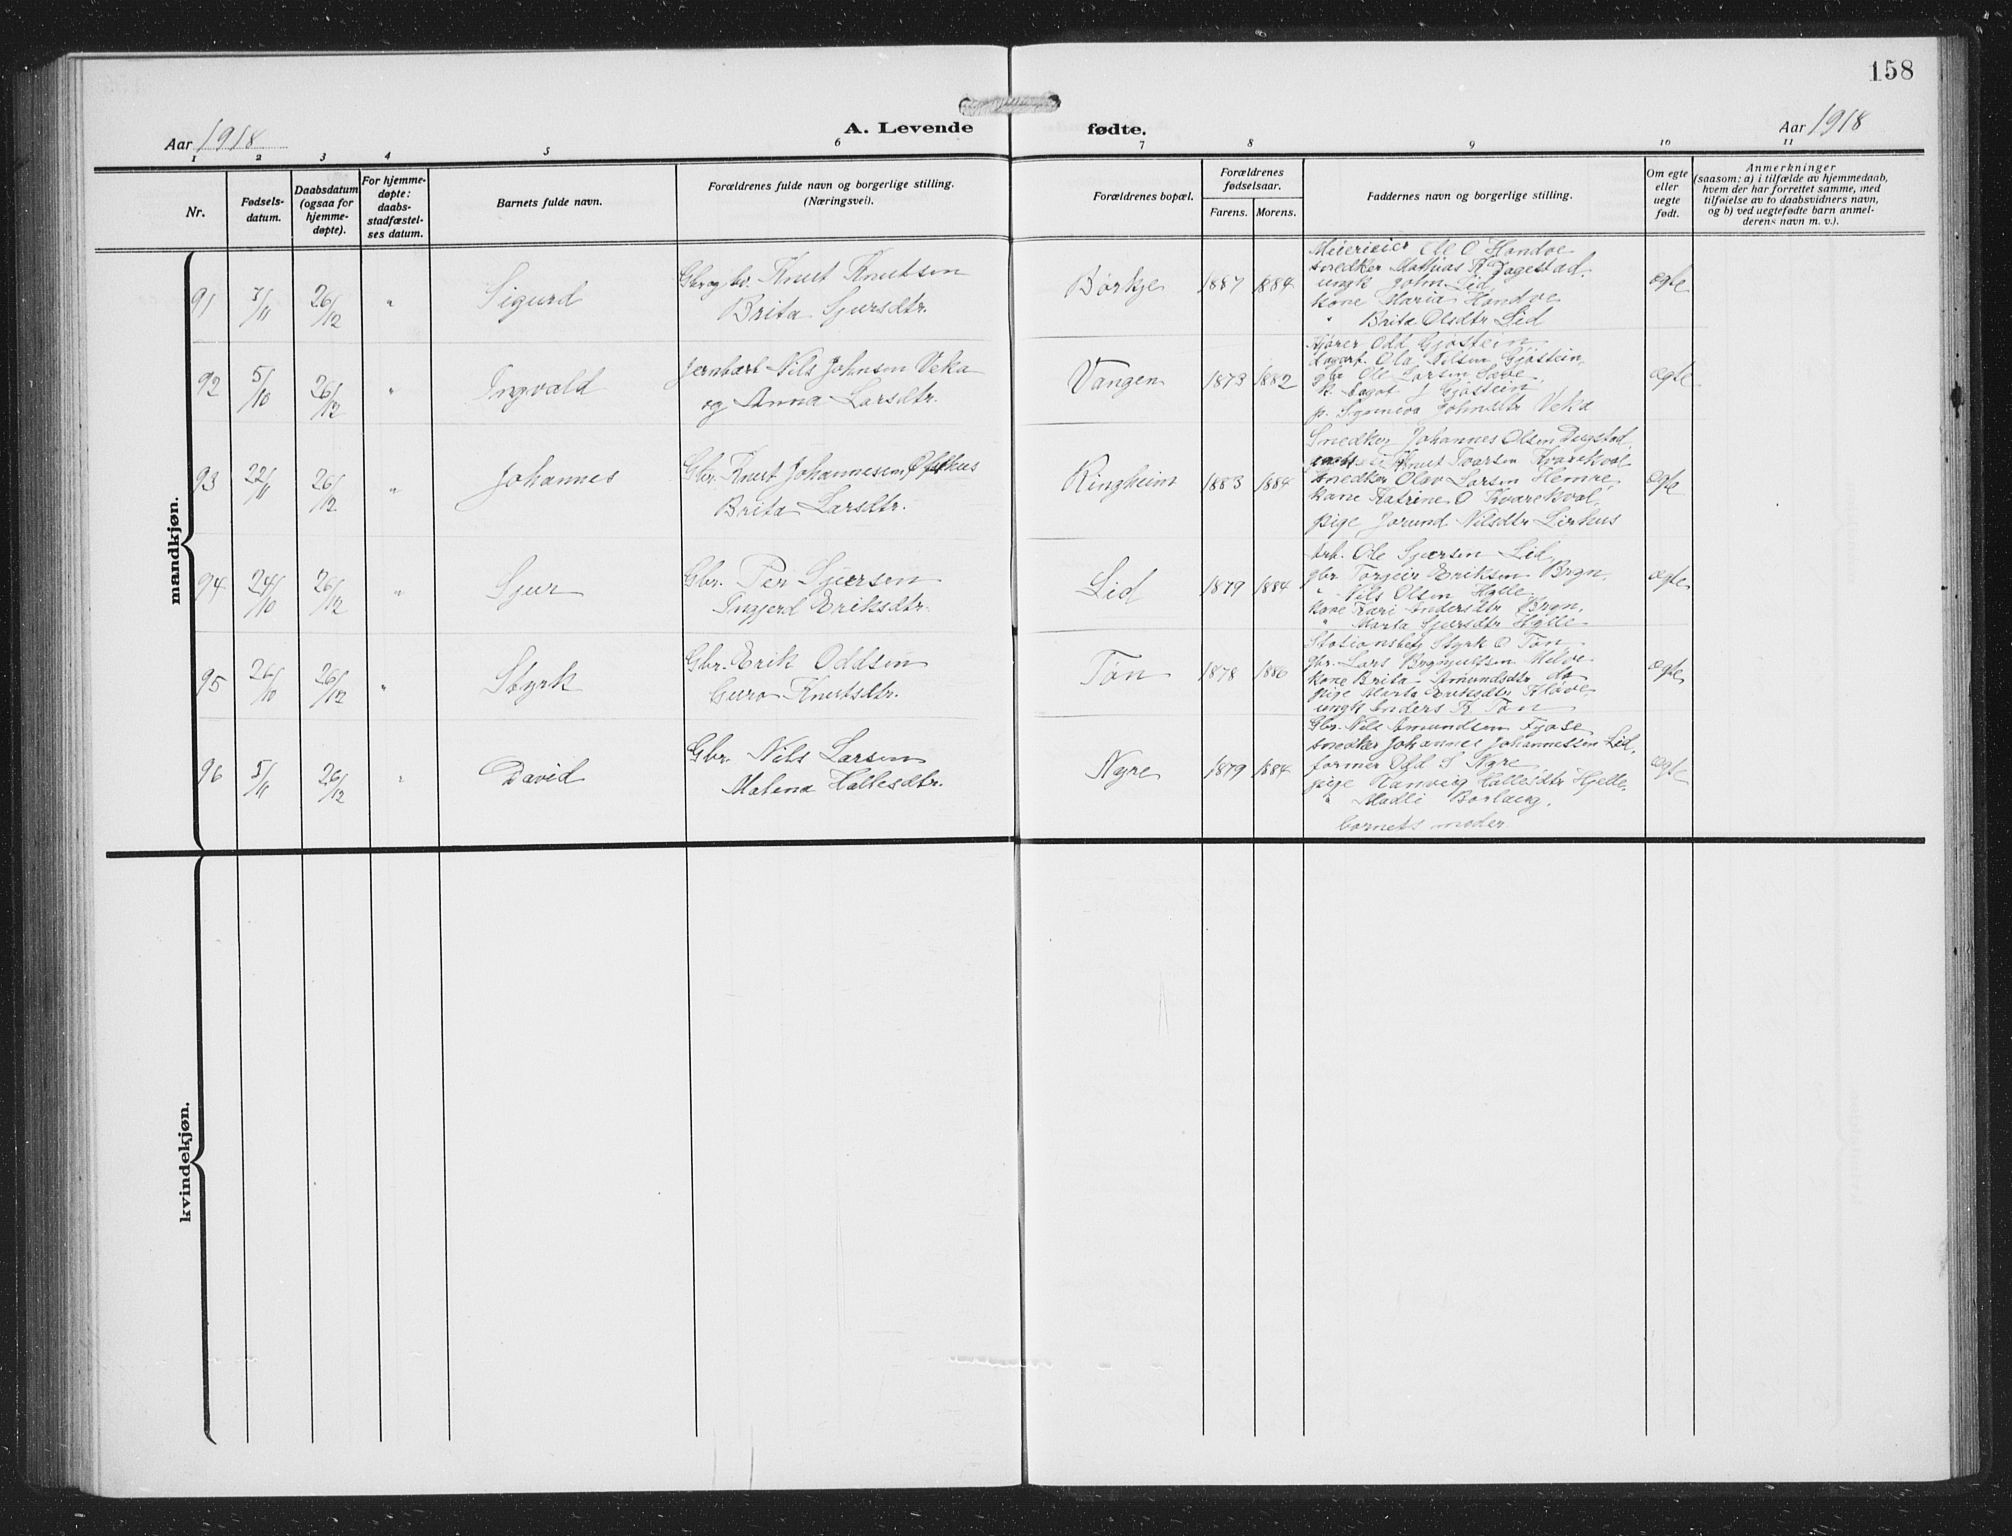 158
Aar 1918
A. Levende fødte.
Aar 1918
1 2 3 4 5 6 7 8 9 10 11
Nr.
Fødsels-
datum.
Daabsdatum
(ogsaa for
hjemme-
døpte).
For hjemme-
døpte:
daabs-
stadfæstel-
ses datum.
Barnets fulde navn.
Forældrenes fulde navn og borgerlige stilling.
(Næringsvei).
Forældrenes bopæl.
Forældrenes
fødselsaar.
Farens. Morens.
Faddernes navn og borgerlige stilling.
Om egte
eller
uegte
født.
Anmerkninger
(saasom: a) i tilfælde av hjemmedaab,
hvem der har forrettet samme, med
tilføielse av to daabsvidners navn,
og b) ved uegtefødte barn anmel-
derens navn m. v.).
mandkjøn.
91 7/11 26/12 " Sigurd
Knut Knutsen
Brita Sjursdtr.
Børkje 1887 1884
Meierieier Ole O Handve
snedker Mathias K Dagestad,
ungk John Lid,
kone Maria Handve
" Brita Olsdtr Lid
ægte
92 5/10 26/12 " Ingvald
Jernbarb Nils Johnsen Veka
og Anna Larsdtr.
Vangen 1873 1882
Kjører Odd Gjøstein,
Ola Nilsen Gjøstein,
gbr Ole Larsen Sæve,
k. Dagot J Gjøstein
p. Synneva Johnsdtr Veka
ægte
93 22/11 26/12 " Johannes
Gbr. Knut Johannesen Øfsthus
Brita Larsdtr.
Ringheim 1883 1884
Snedker Johannes Olsen Dugstad,
Knut Ivarsen Kvarekval
snedker Olav Larsen Hemre,
kone Katrine O Kvarekval,
pige Jorund Nilsdtr Lirhus
ægte
94 24/10 26/12 " Sjur
Gbr. Per Sjursen
Ingjerd Eriksdtr.
Lid 1879 1884
Arb. Ole Sjursen Lid,
gbr. Torgeir Eriksen Bryn,
" Nils Olsen Hylle
kone Kari Andersdtr Bryn,
" Marta Sjursdtr Hylle
ægte
95 26/10 26/12 " Styrk
Gbr. Erik Oddsen
Guro Knutsdtr.
Tøn 1878 1886
Stationsbetj Styrk O Tøn
gbr. Lars Brynjulfsen Melve
kone Brita Amundsdtr do
pige Marta Eriksdtr Kløve,
ungk Anders K Tøn
ægte
96 5/11 26/12 " David
Gbr. Nils Larsen
Malena Hallesdtr.
Nyre 1879 1884
Gbr. Nils Amundsen Fjose
snedker Johannes Johannessen Lid,
former Odd S Nyre
pige Ranveig Hallesdtr Hjelle,
" Madli Borlaug,
barnets moder.
ægte
kvindekjøn.